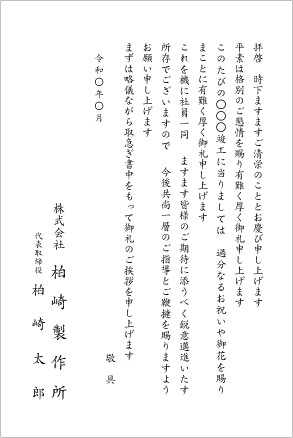 拝啓　時下ますますご清栄のこととお慶び申し上げます
平素は格別のご懇情を賜り有難く厚く御礼申し上げます
このたびの〇〇〇竣工に当りましては　過分なるお祝いや御花を賜り
まことに有難く厚く御礼申し上げます
これを機に社員一同　ますます皆様のご期待に添うべく鋭意邁進いたす
所存でございますので　今後共尚一層のご指導とご鞭撻を賜りますよう
お願い申し上げます
まずは略儀ながら取急ぎ書中をもって御礼のご挨拶を申し上げます
敬具
令和〇年〇月
株式会社　柏崎製作所
代表取締役　柏崎太郎